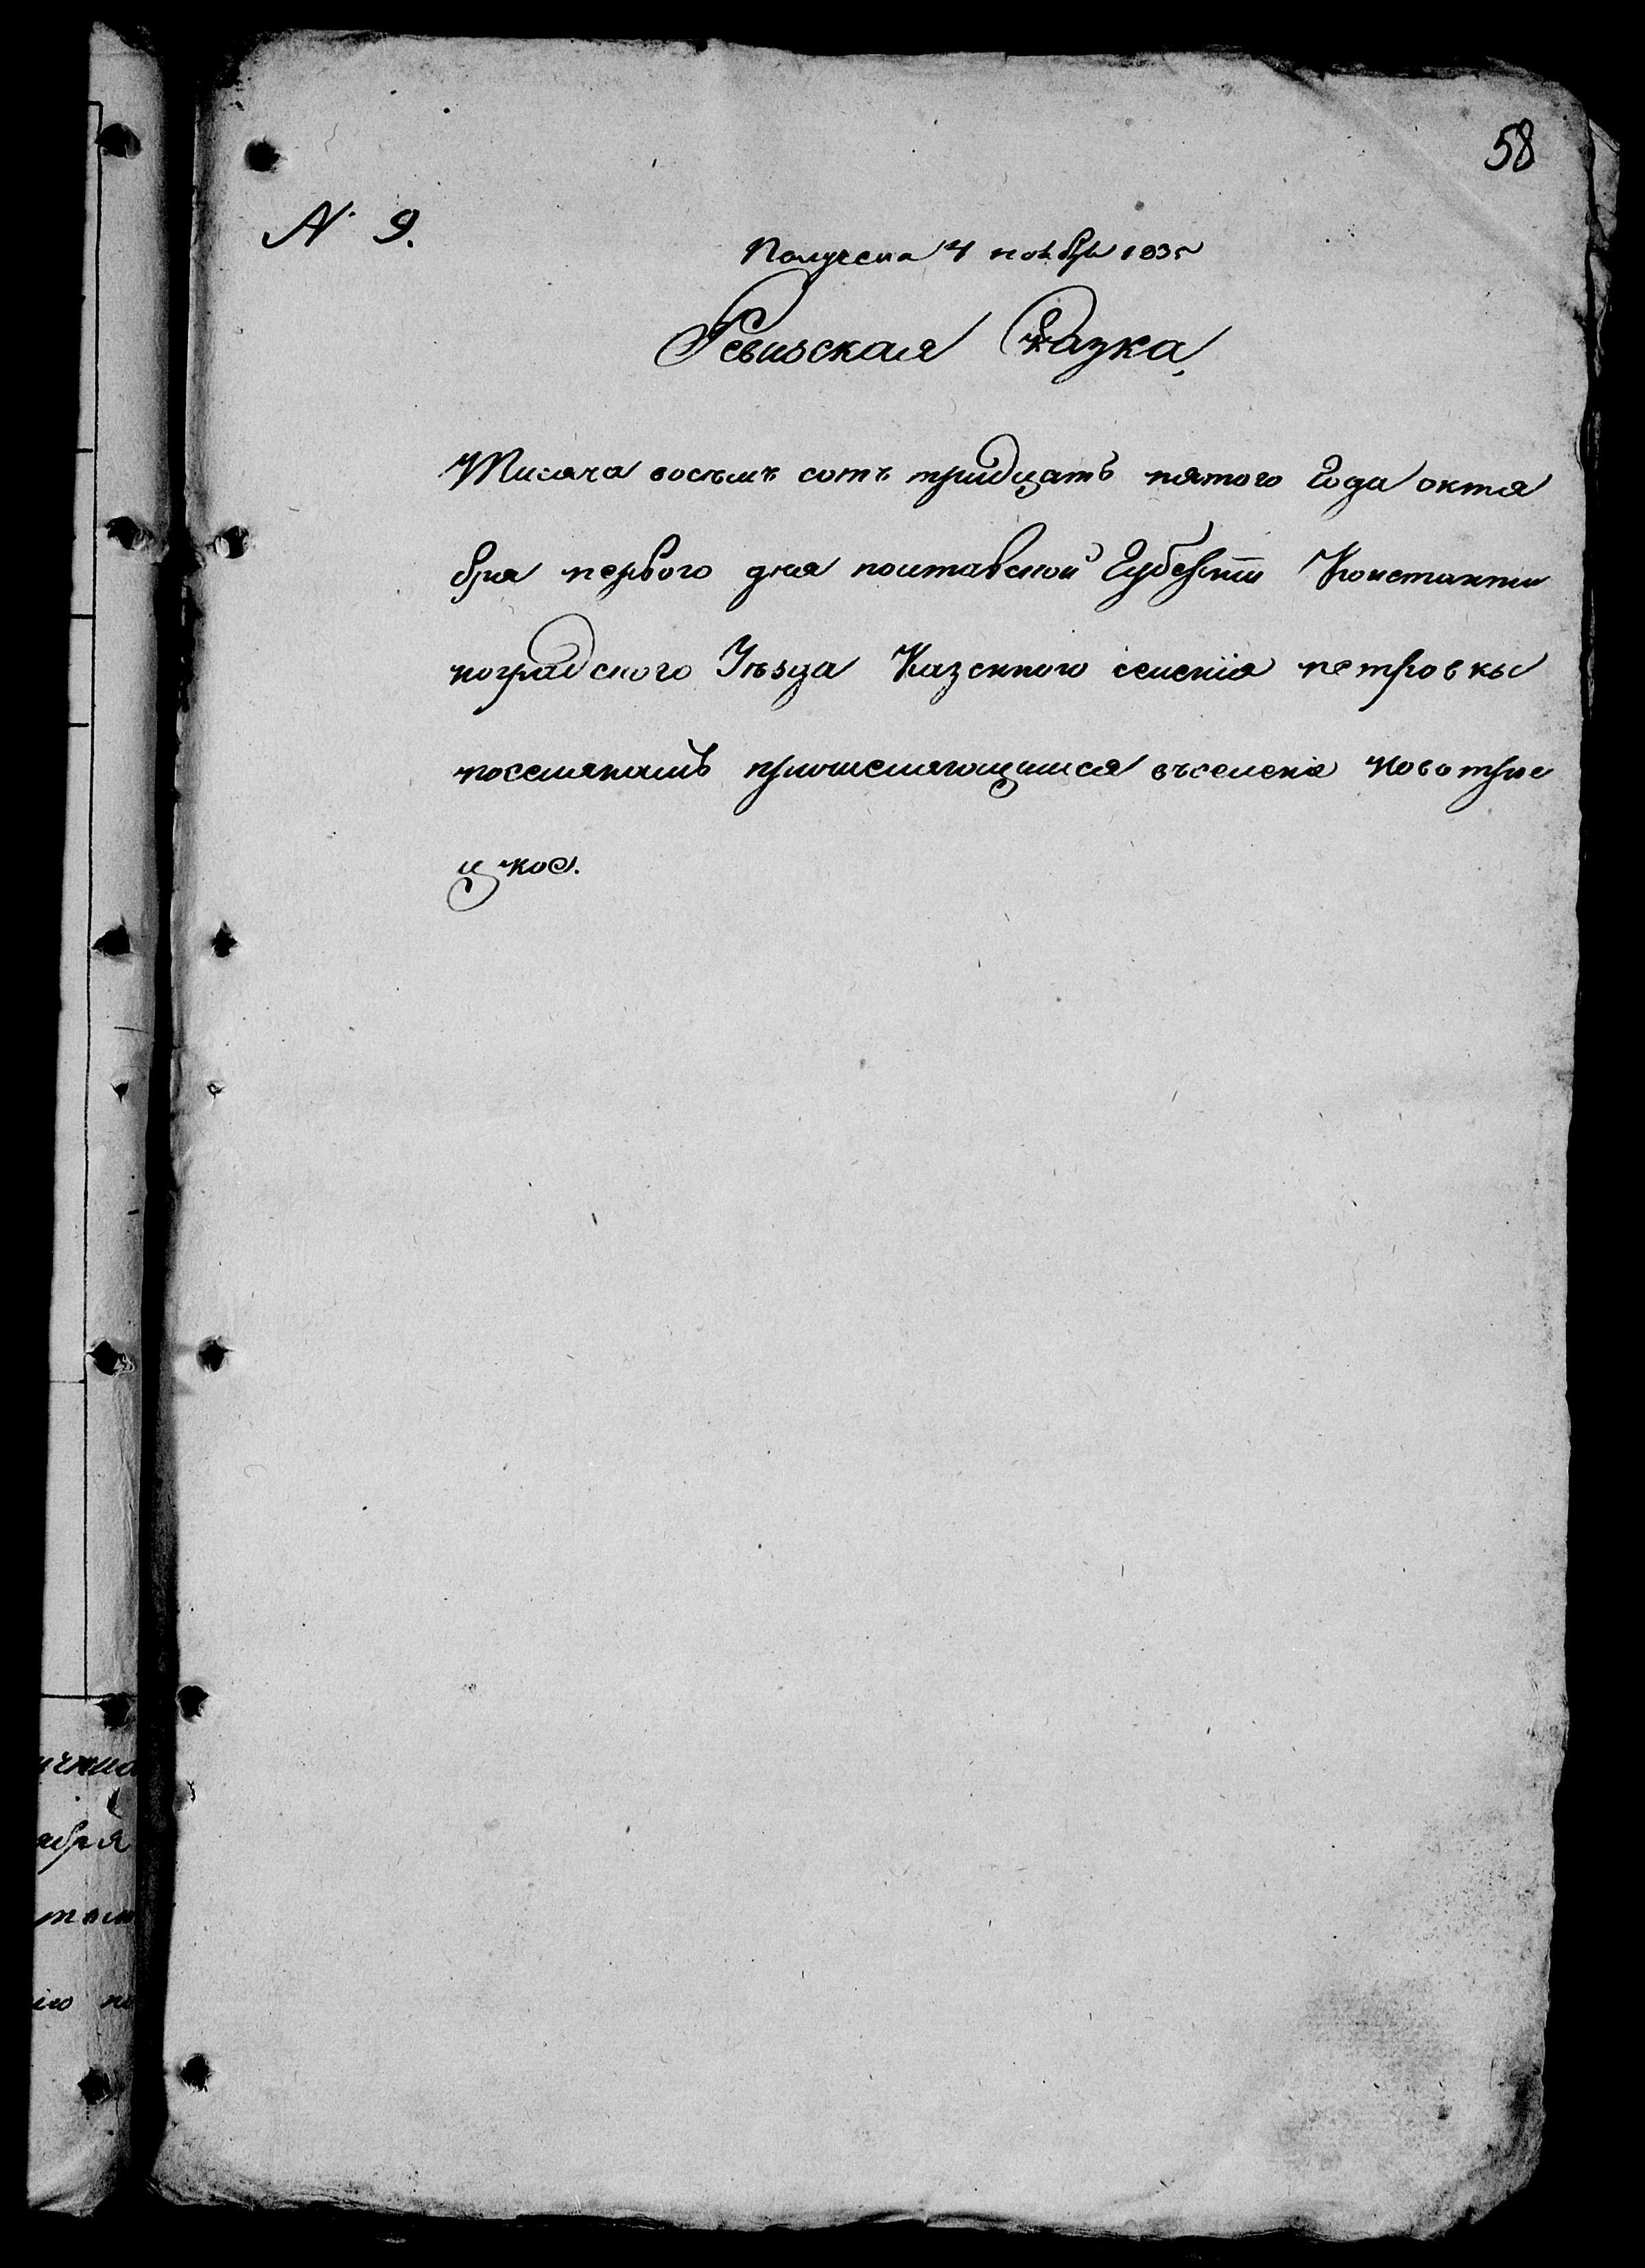 58
№ 9.
Получена 4 ноября 1835
Ревизская Сказка,
Тисяча восемъ сотъ тридцать пятого Года октя
бря первого дня полтавской Губернии Константи
ноградского Уѣзда Казенного селенія петровки
поселянамъ причисляющимся въселение новотрое
цкое.